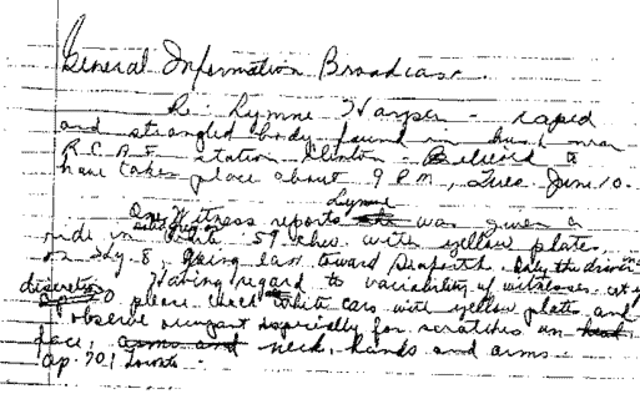 General Information Broadcast.
Re: Lynne Harper - raped
and strangled body found in bush near
R.C.A.F. station Clinton - Believed to
have taken place about 9 P.M., Tues. June 10.
Lynne
One Witness reports she was given a
ride in 59 Chev. with yellow plates,
on Hwy 8, going East toward Seaforth. Only the driver in
Having regard to variability of witnesses
discretion please check all white cars with yellow plates and
observe occupant especially for scratches on head,
face, arms and neck, hands and arms.
Toronto -